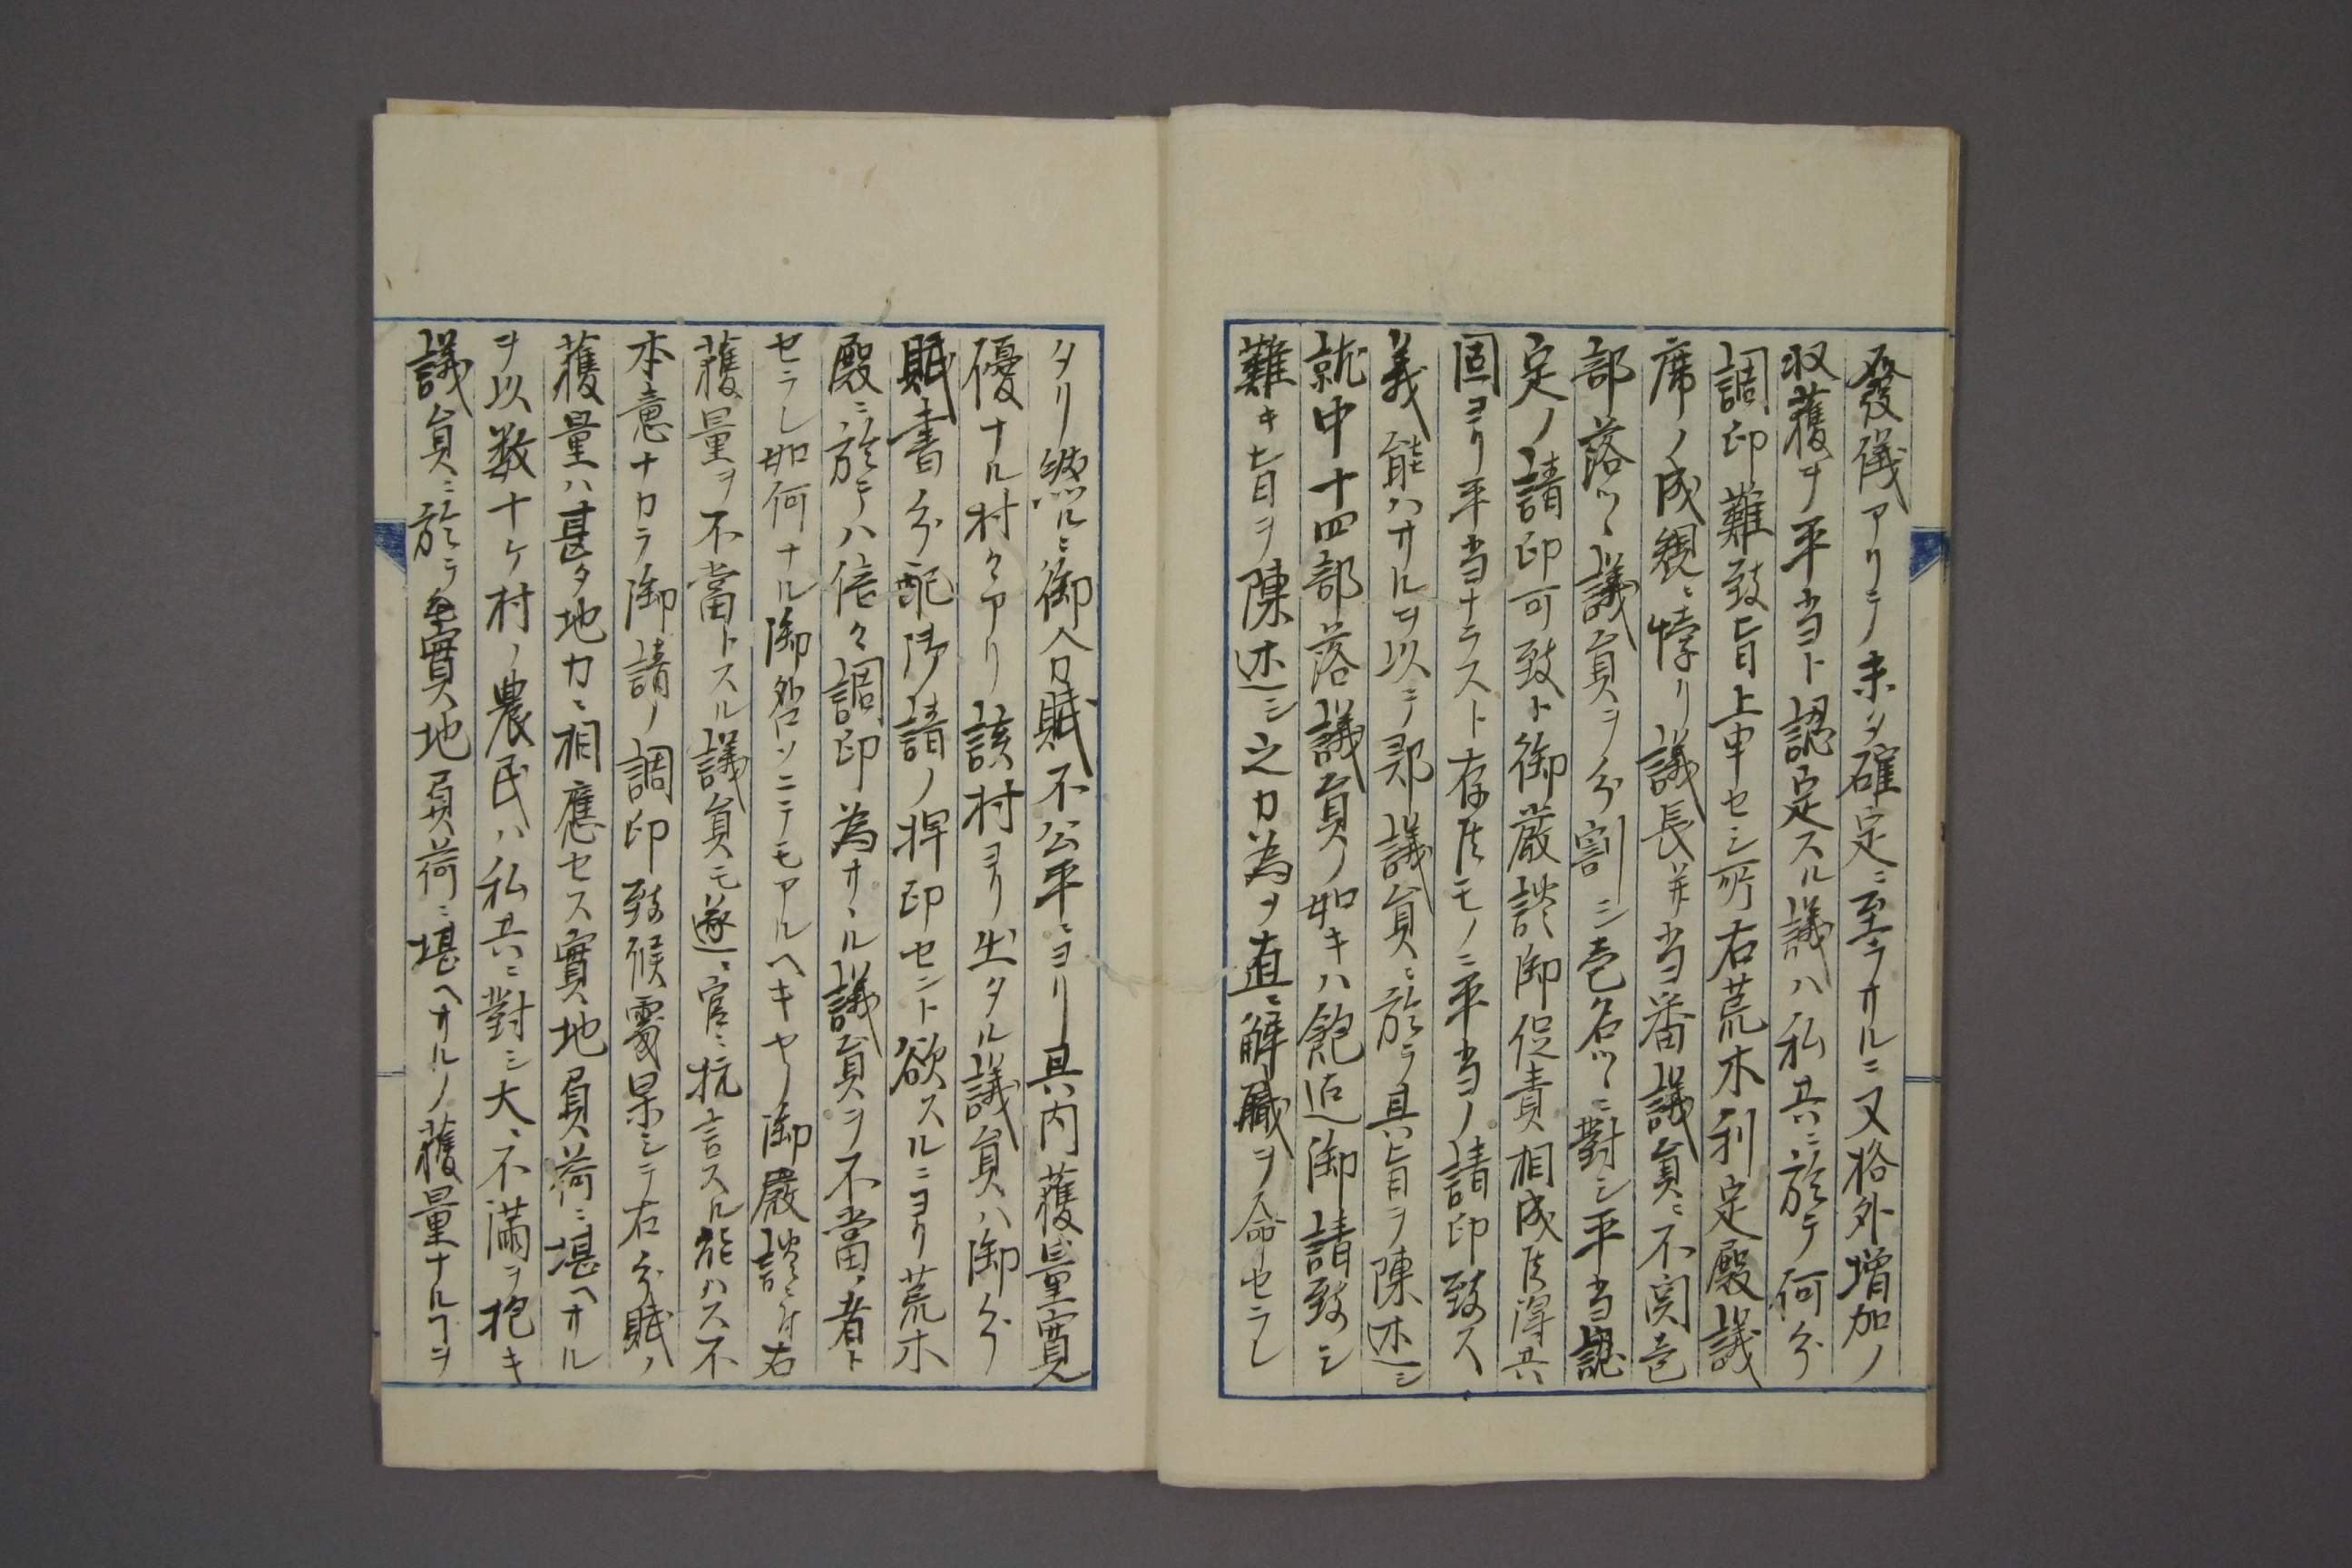 發議アリテ未タ確定ニ至ラサルニ又格外増加ノ
収獲ヲ平当ト認定スル議ハ私共ニ於テ何分
調印難致旨上申セシ所右荒木利定殿議
席ノ成規ニ悖リ議長并当番議員ニ不関壱
部落ツヽ議員ヲ分割シ壱名ツヽニ對シ平当認
定ノ請印可致ト御厳談御促責相成候得共
固ヨリ平当ナラスト存候モノニ平当ノ請印致ス
義能ハサルヲ以テ郡議員ニ於テ具旨ヲ陳述シ
就中十四部落議員ノ如キハ飽迄御請致シ
難キ旨ヲ陳述シ之カ為ヲ直ニ解職ヲ命セラレ
タリ然ルニ御分賦不公平ニヨリ具内獲量寛
優ナル村々アリ該村ヨリ出タル議員ハ御分
賦書分配御請ノ押印セント欲スルニヨリ荒木
殿ニ於テハ倍々調印為サヽル議員ヲ不當ノ者ト
セラレ如何ナル御咎ソニテモアルヘキヤノ御嚴談ニ付右
獲量ヲ不當トスル議員モ遂ニ官ニ抗言スル能ハス不
本意ナカラ御請ノ調印致候處果シテ右分賦ノ
獲量ハ甚タ地力ニ相應セス實地負荷ニ堪ヘサル
ヲ以数十ヶ村ノ農民ハ私共ニ對シ大ニ不満ヲ抱キ
議員ニ於テ實地負荷ニ堪ヘサルノ獲量ナルヿヲ